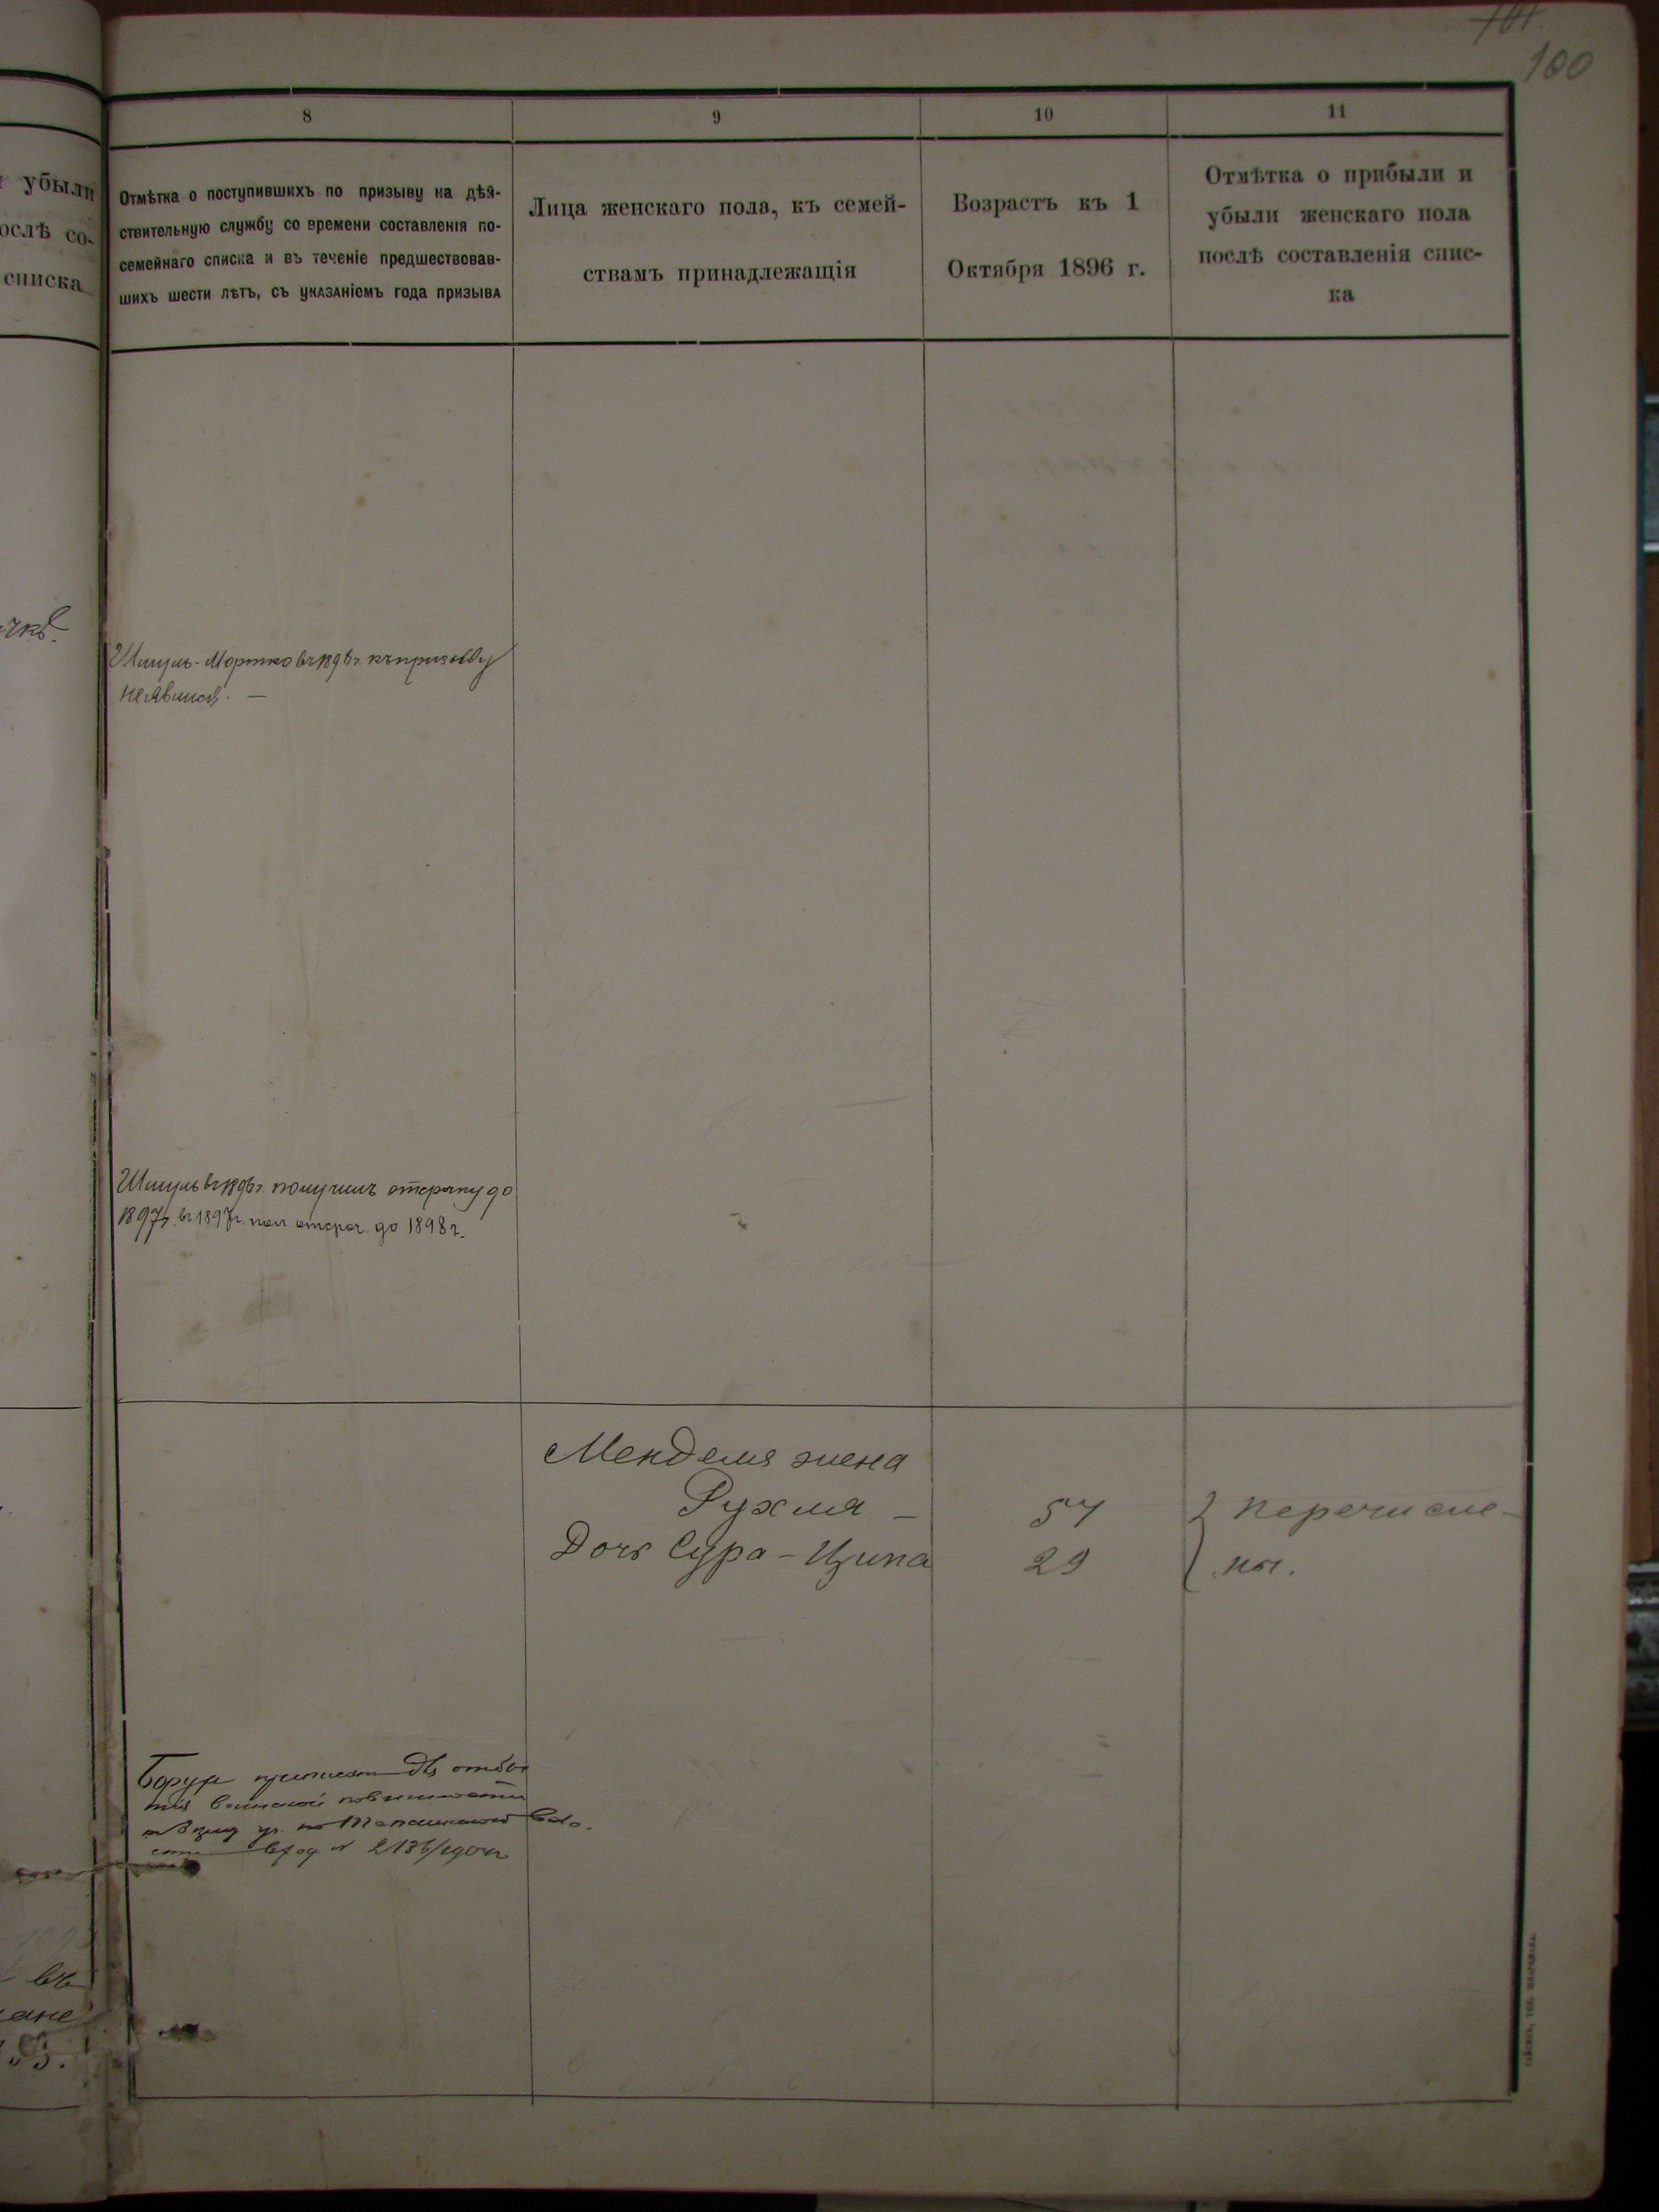 101
100
8
9
10
11
убыли
ослѣ со-
списка
Отмѣтка о поступившихъ по призыву на дѣй-
ствительную службу со времени составленія по-
семейнаго списка и въ теченіе предшествовав-
шихъ шести лѣтъ, съ указаніемъ года призыва
Лица женскаго пола, къ семей-
ствамъ принадлежащія
Возрастъ къ 1
Октября 1896 г.
Отмѣтка о прибыли и
убыли женскаго пола
послѣ составленія спис-
ка
Шмуль-Мортко въ 1896 г. къ призыву
не явился. —
Шмуль въ 1896 г. получилъ отсрочку до
1897 г. въ 1897 г. пол. отсроч. до 1898 г.
Менделя жена
Рухля — 57 } перечисле-
Дочь Сура-Ципа 29 ны.
Борух для отбы
тія воинской повинности
уг. по воло-
сти
въ